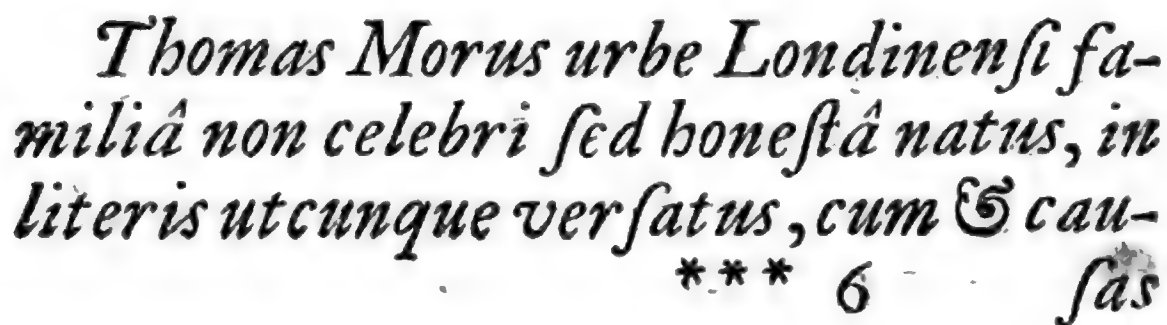 Thomas Morus urbe Londinenſi fa-
miliâ non celebri ſed honeſtâ natus, in
literis utcunque verſatus, cum & cau-
*** 6 ſas